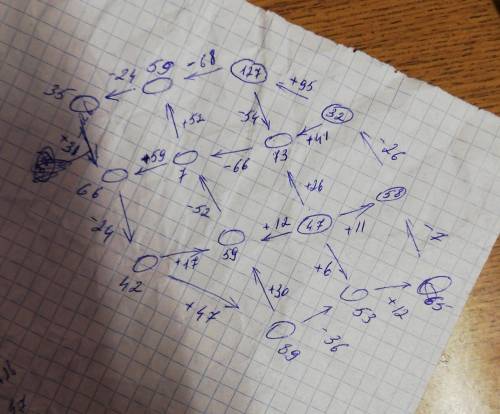 59 -68 127 +95
-24
35 -54 32
+52 +41
+31 +59 7 -66 73 -26
66
-24 -52 +26 58
+12 47 +11
59 -7
42 +17 +6
+47 +30 53 +12 65
89 -36